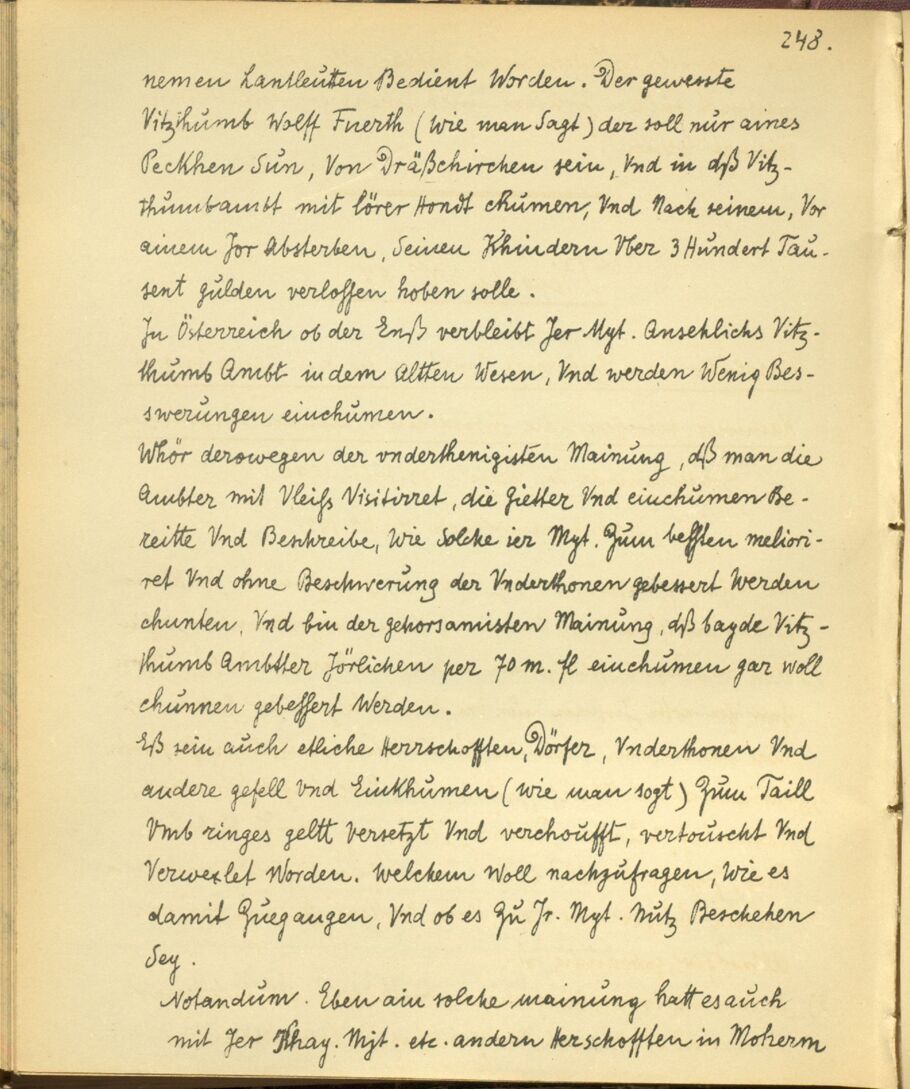 248.
nemen Lantleutten Bedient Worden. Der gewesste
Vitzthumb Wolff Fuerth (wie man Sagt) der soll nur aines
Peckhen Sun, Von Dräßchirchen sein, Vnd in dß Vitz-
thumbambt mit lörer Hondt chumen, Vnd Nach seinem, Vor
ainem Jor Absterben, Seinen Khindern Vber 3 Hundert Tau-
sent gulden verlossen hoben solle.
In Österreich ob der Enß verbleibt Jer Myt. Ansehlichs Vitz-
thumb Ambt in dem Altten Wesen, Vnd werden Wenig Bes-
swerungen einchumen.
Whör derowegen der vnderthenigisten Mainung, dß man die
Ambter mit Vleiß Visitirret, die Gietter Vnd einchumen Be-
reitte Vnd Beschreibe, Wie Solche ier Myt. Zum bessten meliori-
ret Vnd ohne Beschwerung der Vnderthonen gebessert Werden
chunten, Vnd bin der gehorsamisten Mainung, dß bayde Vitz-
thumb Ambtter Jörlichen per 70 m. fl einchumen gar woll
chunnen gebessert Werden.
Eß sein auch etliche Herrschofften, Dörfer, Vnderthonen Vnd
andere gefell vnd Einkhumen (wie man sogt) Zum Taill
Vmb ringes geltt Versetzt Vnd verchoufft, vertouscht Vnd
Verwexlet Worden. Welchem Woll nachzufragen, Wie es
damit Zuegangen, Vnd ob es Zu Jr. Myt. Nutz Beschehen
Sey.
Notandum. Eben ain solche mainung hatt es auch
mit Jer Khay. Myt. etc. andern Herschofften in Moherrn